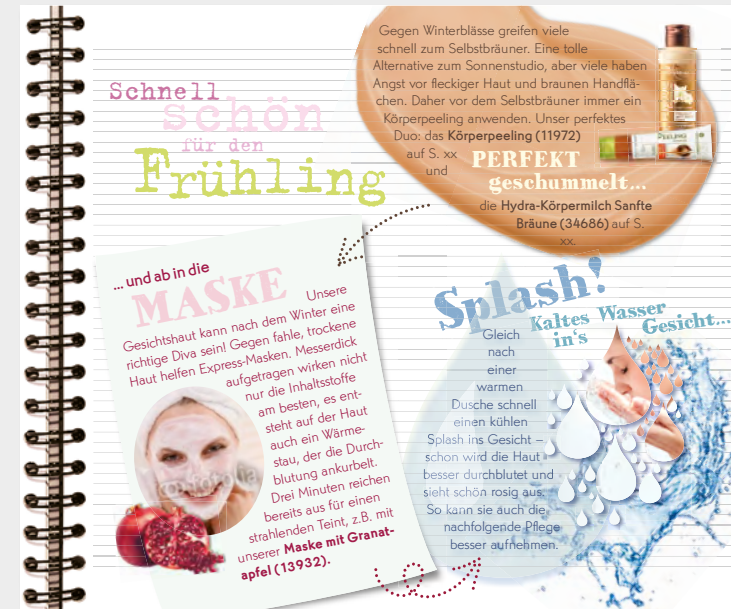 Schnell
schön
für den
Frühling
Gegen Winterblässe greifen viele
schnell zum Selbstbräuner. Eine tolle
Alternative zum Sonnenstudio, aber viele haben
Angst vor fleckiger Haut und braunen Handflä-
chen. Daher vor dem Selbstbräuner immer ein
Körperpeeling anwenden. Unser perfektes
Duo: das Körperpeeling (11972)
auf S. xx
und
PERFEKT
geschummelt...
die Hydra-Körpermilch Sanfte
Bräune (34686) auf S.
xx.
PEELING
... und ab in die
MASKE
Unsere
Gesichtshaut kann nach dem Winter eine
richtige Diva sein! Gegen fahle, trockene
Haut helfen Express-Masken. Messerdick
aufgetragen wirken nicht
nur die Inhaltsstoffe
am besten, es ent-
steht auf der Haut
auch ein Wärme-
stau, der die Durch-
blutung ankurbelt.
Drei Minuten reichen
bereits aus für einen
strahlenden Teint, z.B. mit
unserer Maske mit Granat-
apfel (13932).
Splash!
Kaltes Wasser
in's Gesicht...
Gleich
nach
einer
warmen
Dusche schnell
einen kühlen
Splash ins Gesicht –
schon wird die Haut
besser durchblutet und
sieht schön rosig aus.
So kann sie auch die
nachfolgende Pflege
besser aufnehmen.